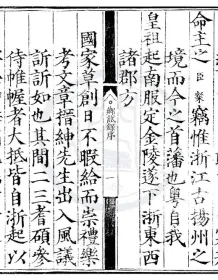 命主之臣粲竊惟浙江古揚州之
境而今之首藩也粤自我
皇祖起南服定金陵遂下浙東西
諸郡方
國家草創日不暇給而崇禮樂
考文章搢紳先生出入風議
訢訢如也其間二三耆碩參
侍帷幄者大抵皆自浙起以